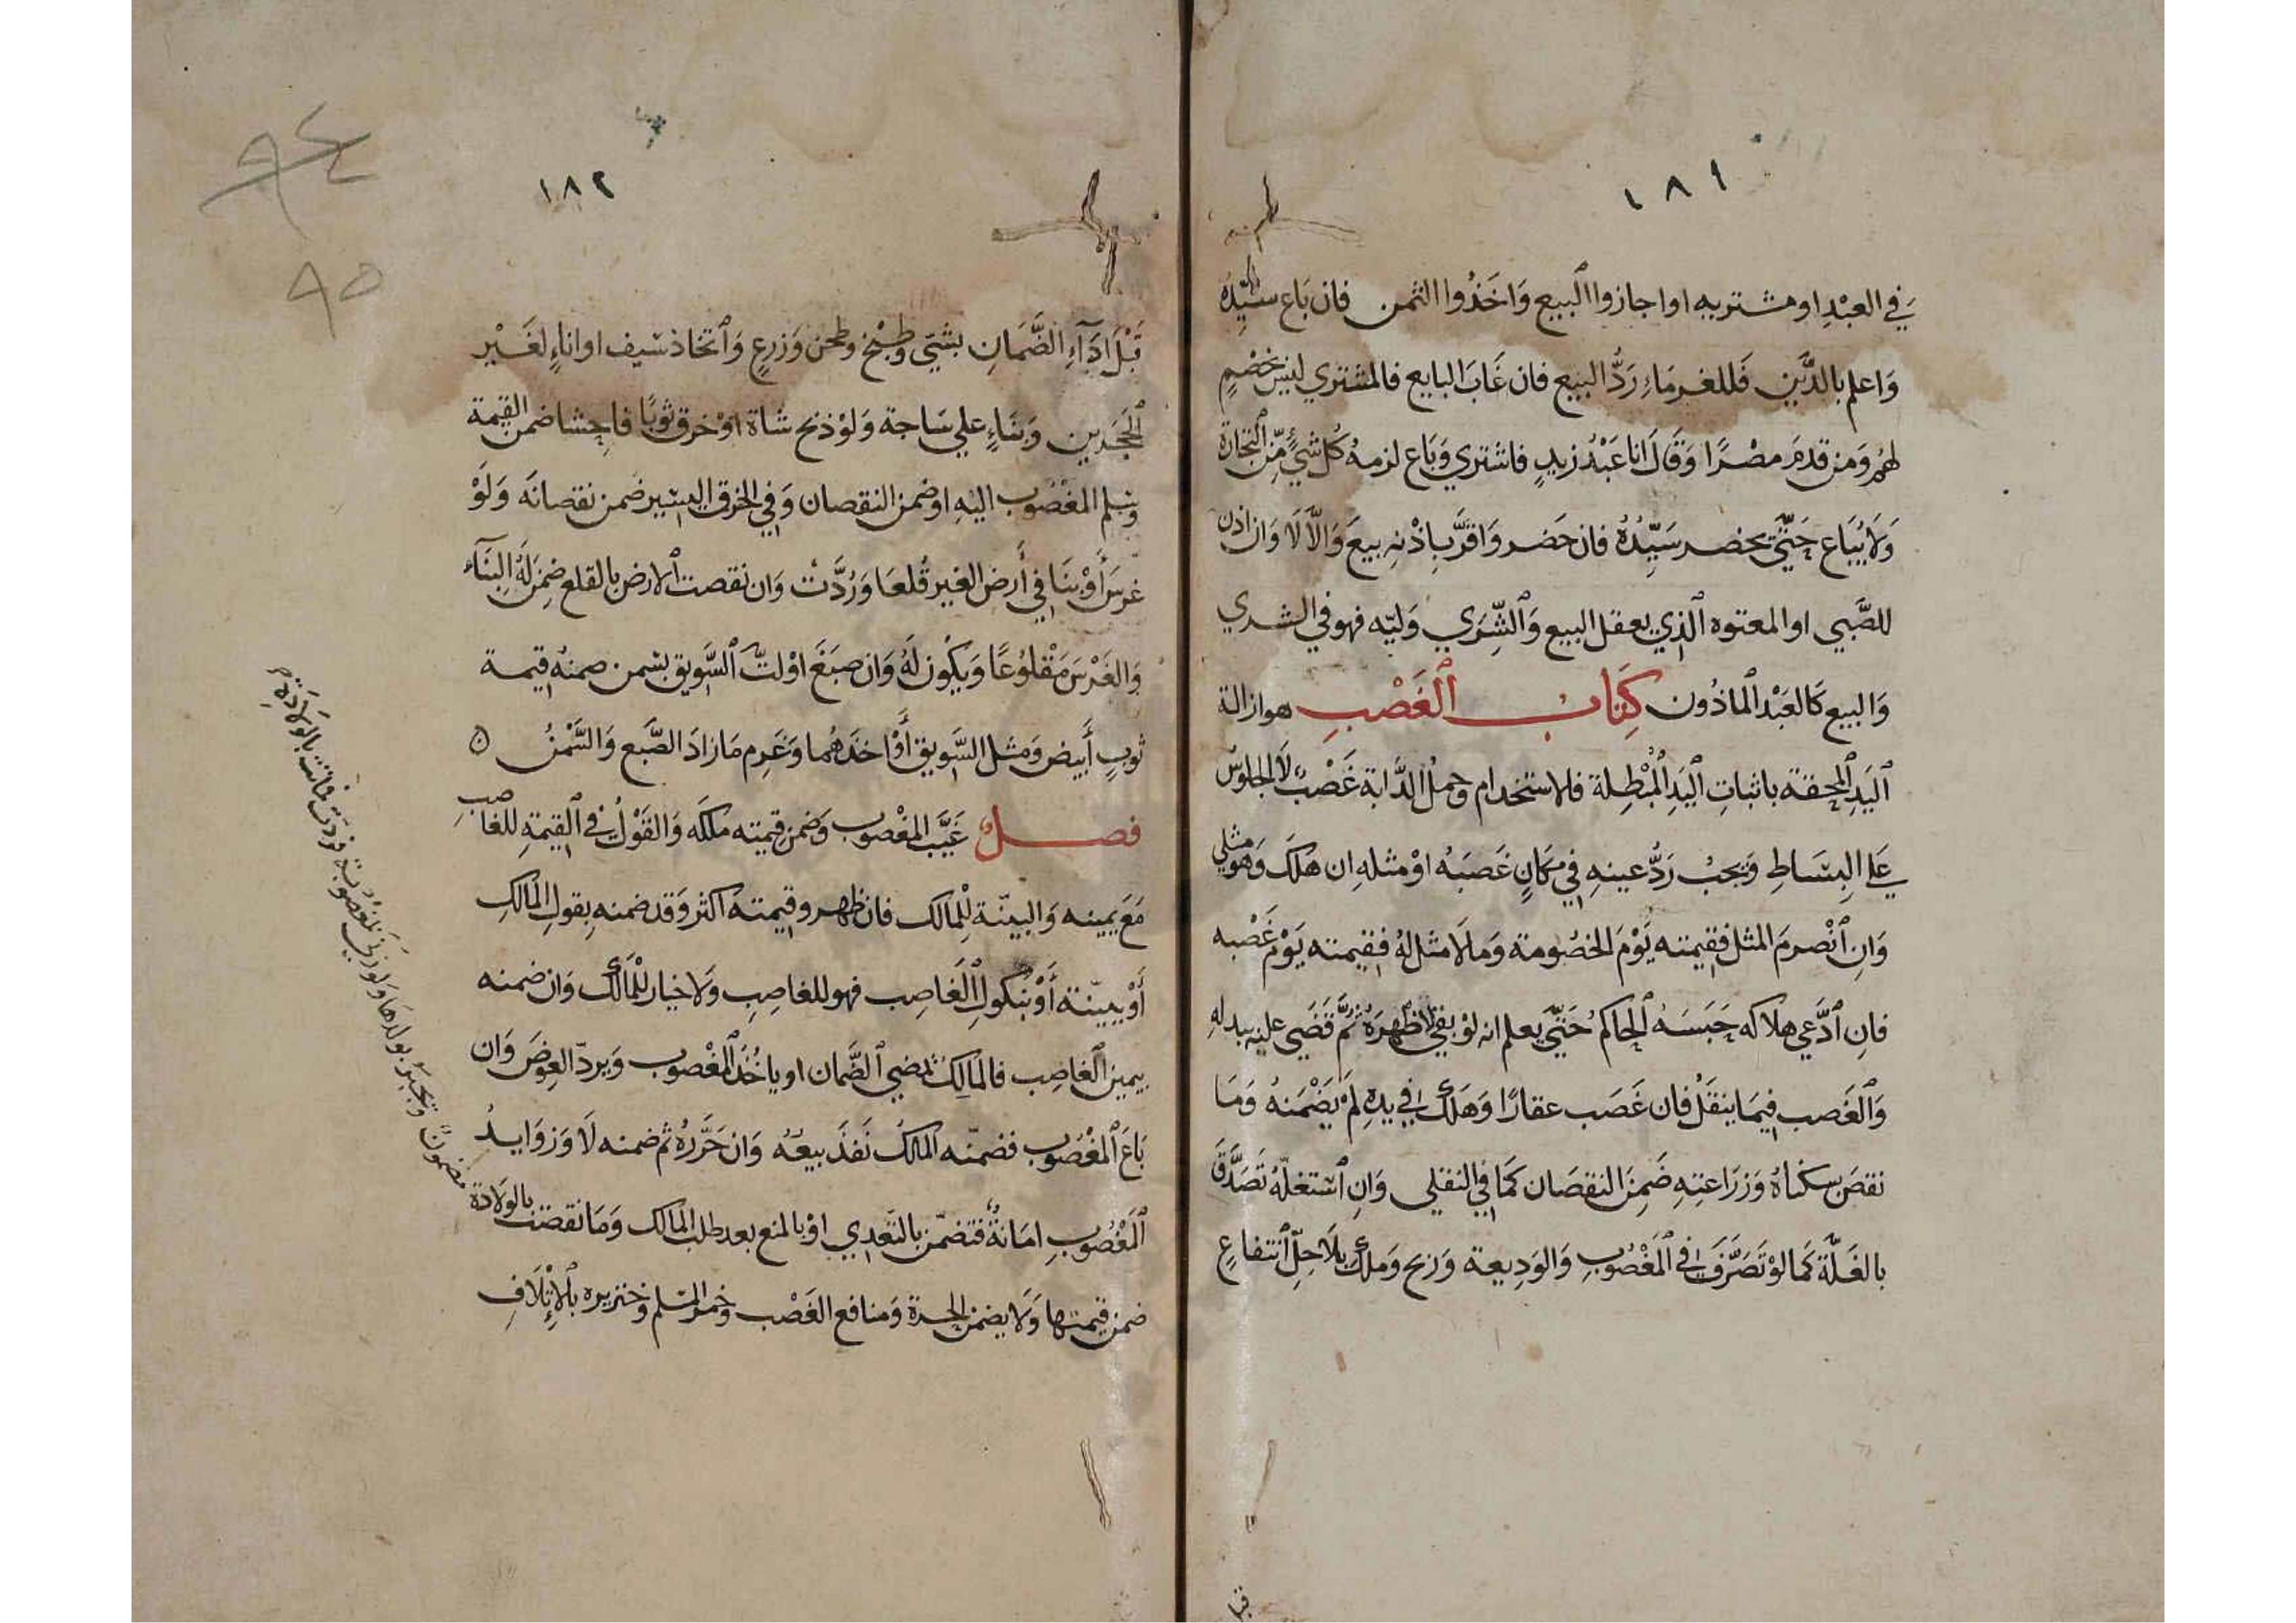 ١٨١
في العبْدِ او مشتريه او اجازوا البيع وَاخَذُوا الثمن فان بَاع سَيِّدُه
وَاعلم بالدَّيْنِ فَللغرمَاءِ رَدُّ البيع فان غَابَ البايع فالمشتري ليسَ بخصْمٍ
لهُم وَمن قدمَ مصْرًا وَقَالَ انا عَبْدُ زيدٍ فاشتري وَبَاع لزمهُ كُل شيْءٍ مِّنَ التجارَة
وَلَا يُبَاع حَتّي يحضر سَيِّدُهُ فان حَضر وَاقرَّ بِاذْنِهِ بِيعَ وَالَّا لَا وَان اذن
للصَّبي او المعتوه الَّذي يعقل البيع وَالشِّرَي وَليّه فهو في الشري
وَالبيع كَالعَبْد الماذُون كِتَابُ الغَصْبِ هو ازالة
اليَدِ المحقة باثباتِ اليَدِ المُبْطِلة فالاستخدام وَحملُ الدَّابة غَصْبٌ لَا الجلوسُ
عَلي البِسَاطِ وَيجبُ رَدُّ عينهِ في مكَانٍ غَصَبَهُ اوْ مثلهِ ان هلَكَ وَهو مثلي
وَانِ انْصرمَ المثل فقيمته يَوْمَ الخصُومة وَما لَا مثل لهُ فقيمته يَوْمَ غَصْبه
فانِ ادَّعي هلَاكه حَبَسَهُ الحاكم حَتّي يعلم انه لوْ بقي لَاظهرَهُ ثمَّ قَضَي عليْهِ ببدلهِ
وَالغَصب فيمَا ينقَلُ فان غَصَب عقارًا وَهَلَكَ في يدهِ لَمْ يَضْمَنهُ وَمَا
نقصَ بسكناهُ وَزرَاعتِهِ ضَمِنَ النقصَان كَمَا في النقلي وَانِ اسْتغلّهُ تَصَدَّقَ
بالغَلَّة كَمَا لوْ تَصَرَّفَ في المَغْصُوبِ وَالوَدِيعة وَربح وَملكَ بلَا حِلِّ انتفاعٍ
قبل
١٨٢
٩٤
٩٥
قَبْلَ ادَآءِ الضَّمَانِ بشيّ وَطبْخٍ وَطحن وَزرعٍ وَاتّخاذ سَيف او اناءٍ لغَيْر
الحَجَرَين وَبنَاءٍ علي سَاجة وَلوْ ذبح شاة اوْ خرق ثوبًا فاحِشا ضمن القيمة
وَسلم المغْصُوب اليْهِ او ضمن النقصان وَفي الخرق اليسير ضمن نقصانَه وَلَوْ
غرسَ أَوْ بنَا في أَرض الغير قُلعَا وَرُدَّتْ وَان نقصت الارض بالقلع ضَمِنَ لَهُ البِنَآءَ
وَالغَرْسَ مَقْلوُعًا وَيكُون لَهُ وَان صبَغَ اوْ لتَّ السَّويق بسمن ضمنهُ قيمة
ثوبٍ أَبيض وَمثل السَّويق أَوْ اخذَهُما وَغَرِم مَا زادَ الصَّبع وَالسَّمْنُ
فصل غَيَّبَ المغْصُوب وَضمن قيمتِه ملكَه وَالقَوْلُ في القِيمَةِ للغاصِبِ
مَعَ يمينه وَالبيّنة لِلْمالك فان ظهر وقيمته اكثر وَقد ضمنه بِقولِ المَالكِ
أَوْ ببيّنة أَوْ بنكولِ الغَاصِب فهو للغاصِبِ وَلَا خيار للْمَالكِ وَان ضمنه
بيمين الغَاصِب فالمَالِكُ يمضي الضَّمان او ياخُذ المَغْصوب وَيردّ العِوضَ وَان
بَاعَ المغْصُوب فضمنّه المالكُ نَفذَ بيعُهُ وَان حَرَّرهُ ثم ضمنه لَا وَزوَايدُ
المَغْصُوبِ امَانةٌ فتضمن بالتّعدي اوْ بالمنع بعد طلب المالك وَمَا نقصَت بالولَادة
ضمن قيمتها وَلَا يضمن الحرة وَمنافع الغَصْب وَخمر المسْلم وَخنزيره بالإتْلَافِ
مضمون وَيجبر بولدها وَلو زني بمَغْصُوبة فردت فماتت بالولادة